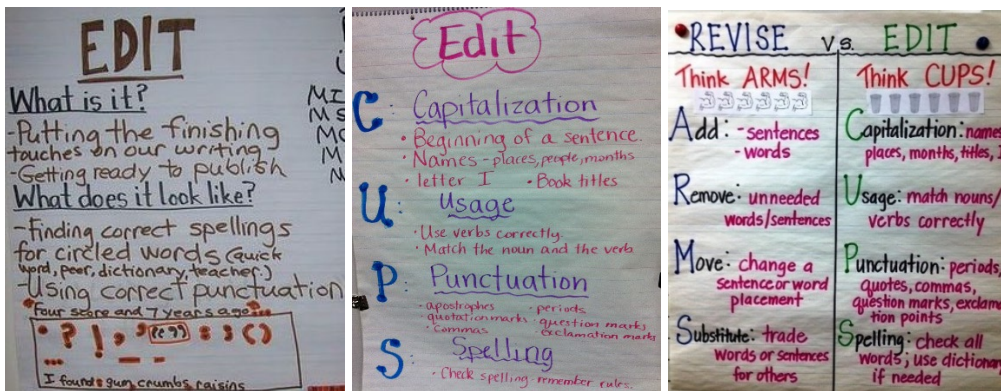 EDIT
What is it?
-Putting the finishing
touches on our writing
-Getting ready to publish
What does it look like?
-Finding correct spellings
for circled words (quick
word, peer, dictionary, teacher.)
-Using correct punctuation
four score and 7 years ago...
. ? ! , ' (" ") : ; ()
... — —
I found: gum, crumbs, raisins
MI
MS
Edit
C: Capitalization
• Beginning of a sentence.
• Names - places, people, months
• letter I • Book titles
U: Usage
• Use verbs correctly.
• Match the noun and the verb
P: Punctuation
-apostrophes • periods
•quotation marks • question marks
• commas • exclamation marks
S: Spelling
• Check spelling - remember rules.
REVISE vs. EDIT
Think ARMS!
Add: - sentences
- words
Remove: unneeded
words/sentences
Move: change a
sentence or word
placement
Substitute: trade
words or sentences
for others
Think CUPS!
Capitalization: names
places, months, titles, I
Usage: match nouns/
verbs correctly
Punctuation: periods
quotes, commas,
question marks, exclama
tion points
Spelling: check all
words; use dictiona
if needed